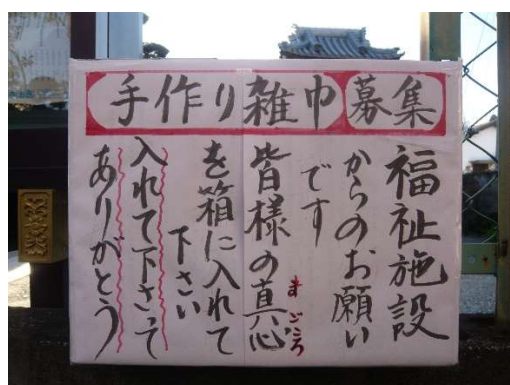 手作り雑巾募集
福祉施設
からのお願い
です
皆様の真心
まごころ
を箱に入れて
下さい
入れて下さって
ありがとう